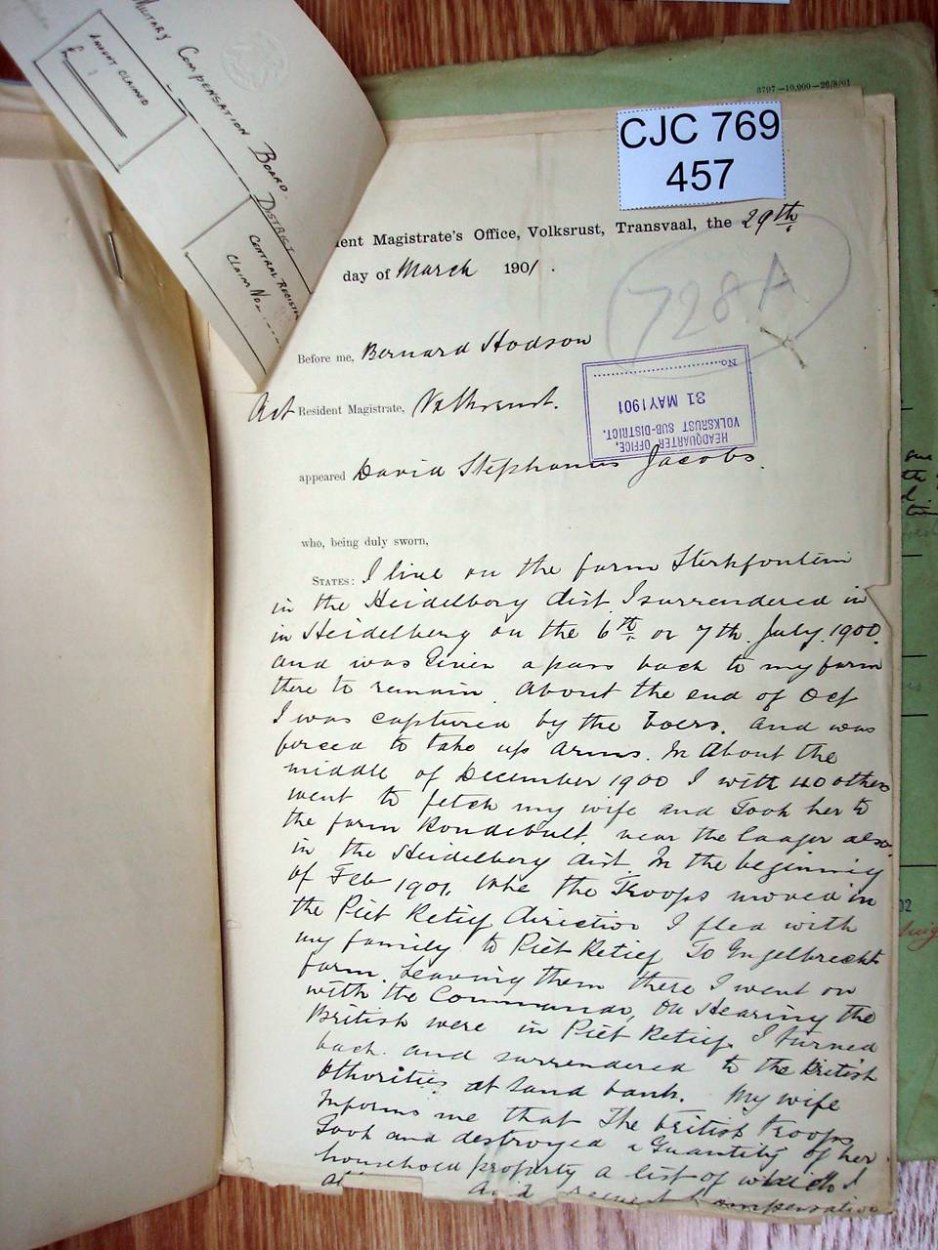 MILITARY COMPENSATION BOARD.
AMOUNT CLAIMED
£
DISTRICT
CENTRAL REGISTER
CLAIM No.
3707—10,000—26/8/01
CJC 769
457
ent Magistrate's Office, Volksrust, Transvaal, the 29th
day of March 1901.
728A
Before me, Bernard Hodson
Act Resident Magistrate, Volksrust.
No.
31 MAY 1901
HEADQUARTER OFFICE,
VOLKSRUST SUB-DISTRICT.
appeared David Stephanus Jacobs.
who, being duly sworn,
STATES: I live on the farm Sterkfontein
in the Heidelberg dist. I surrendered in
in Heidelberg on the 6th or 7th July 1900.
and was Given a pass back to my farm
there to remain. About the end of Oct
I was captured by the boers. and was
forced to take up arms. In About the
middle of December 1900 I with 40 others
went to fetch my wife and Took her to
the farm Rondebult, near the laager also
in the Heidelberg dist. In the beginning
of Feb 1901, the Troops moved in
the Piet Retief direction I fled with
my family to Piet Retief To Engelbrecht
farm. Leaving them there I went on
with the Commando, On Hearing the
British were in Piet Retief I turned
back and surrendered to the British
Athorities at Sand bank. My wife
Informs me that The british troops
Took and destroyed a Quantity of her
household property a list of which I
and request compensation